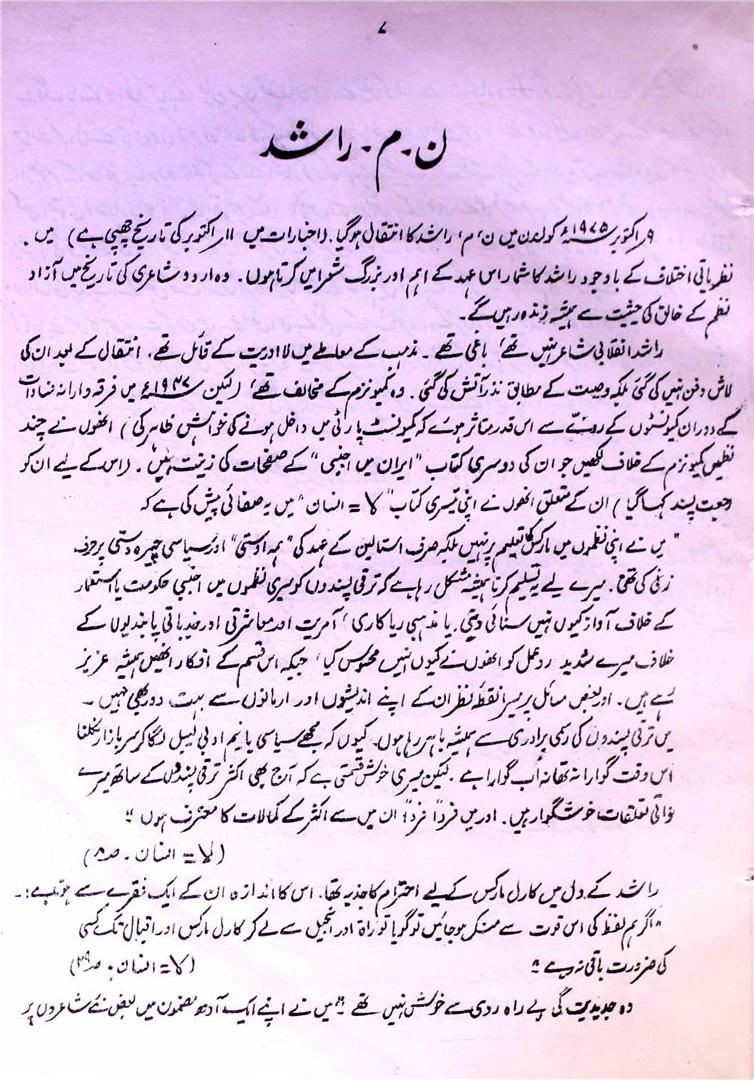 ۷
ن ۔ م ۔ راشد
۹ اکتوبر ۱۹۷۵ء کو لندن میں ن ، م ، راشد کا انتقال ہو گیا۔ (اخبارات میں ۱۱ اکتوبر کی تاریخ چھپی ہے) میں ۔
نظریاتی اختلاف کے باوجود راشد کا شمار اس عہد کے اہم اور بزرگ شعرا میں کرتا ہوں۔ وہ اردو شاعری کی تاریخ میں آزاد
نظم کے خالق کی حیثیت سے ہمیشہ زندہ رہیں گے۔
راشد انقلابی شاعر نہیں تھے، باغی تھے ۔ مذہب کے معاملے میں لاادریت کے قائل تھے ، انتقال کے بعد ان کی
لاش دفن نہیں کی گئی بلکہ وصیت کے مطابق نذر آتش کی گئی ۔ وہ کمیونزم کے مخالف تھے، (لیکن ۱۹۴۷ء میں فرقہ وارانہ فسادات
کے دوران کمیونسٹوں کے رویّے سے اس قدر متاثر ہوئے کہ کمیونسٹ پارٹی میں داخل ہونے کی خواہش ظاہر کی) انھوں نے چند
نظمیں کمیونزم کے خلاف لکھیں جو ان کی دوسری کتاب "ایران میں اجنبی" کے صفحات کی زینت ہیں ۔ (اس کے لیے ان کو
رجعت پسند کہا گیا) ان کے متعلق انھوں نے اپنی تیسری کتاب "لا = انسان" میں یہ صفائی پیش کی ہے کہ
"میں نے اپنی نظموں میں مارکس کی تعلیم پر نہیں بلکہ صرف استالین کے عہد کی "ہمہ اوستی" اور سیاسی چیرہ دستی پر حرف
زنی کی تھی ۔ میرے لیے یہ تسلیم کرنا ہمیشہ مشکل رہا ہے کہ ترقی پسندوں کو میری نظموں میں اجنبی حکومت یا استعمار
کے خلاف آواز کیوں نہیں سنائی دیتی ۔ یا مذہبی ریاکاری، آمریت اور معاشرتی اور جذباتی پابندیوں کے
خلاف میرے شدید ردعمل کو انھوں نے کیوں نہیں محسوس کیا، جبکہ اس قسم کے افکار انھیں ہمیشہ عزیز
رہے ہیں ۔ اور بعض مسائل پر میرا نقطہ نظر ان کے اپنے اندیشوں اور ارمانوں سے بہت دور بھی نہیں ۔
میں ترقی پسندوں کی رسمی برادری سے ہمیشہ باہر رہا ہوں۔ کیوں کہ مجھے سیاسی یا نیم ادبی لیبل لگا کر سر بازار نکلنا
اس وقت گوارا نہ تھا نہ اب گوارا ہے ۔ لیکن میری خوش قسمتی ہے کہ آج بھی اکثر ترقی پسندوں کے ساتھ میرے
ذاتی تعلقات خوشگوار ہیں ۔ اور میں فرداً فرداً ان میں سے اکثر کے کمالات کا معترف ہوں "
(لا = انسان ۔ ص ۸)
راشد کے دل میں کارل مارکس کے لیے احترام کا جذبہ تھا۔ اس کا اندازہ ان کے ایک فقرے سے ہوتا ہے :۔
"اگر ہم لفظ کی اس قوت سے منکر ہو جائیں تو گویا توراۃ اور انجیل سے لے کر کارل مارکس اور اقبال تک کسی
کی ضرورت باقی نہ رہے " (لا = انسان ، ص ۳۹)
وہ جدیدیت کی بے راہ روی سے خوش نہیں تھے "میں نے اپنے ایک آدھ مضمون میں بعض نئے شاعروں پر